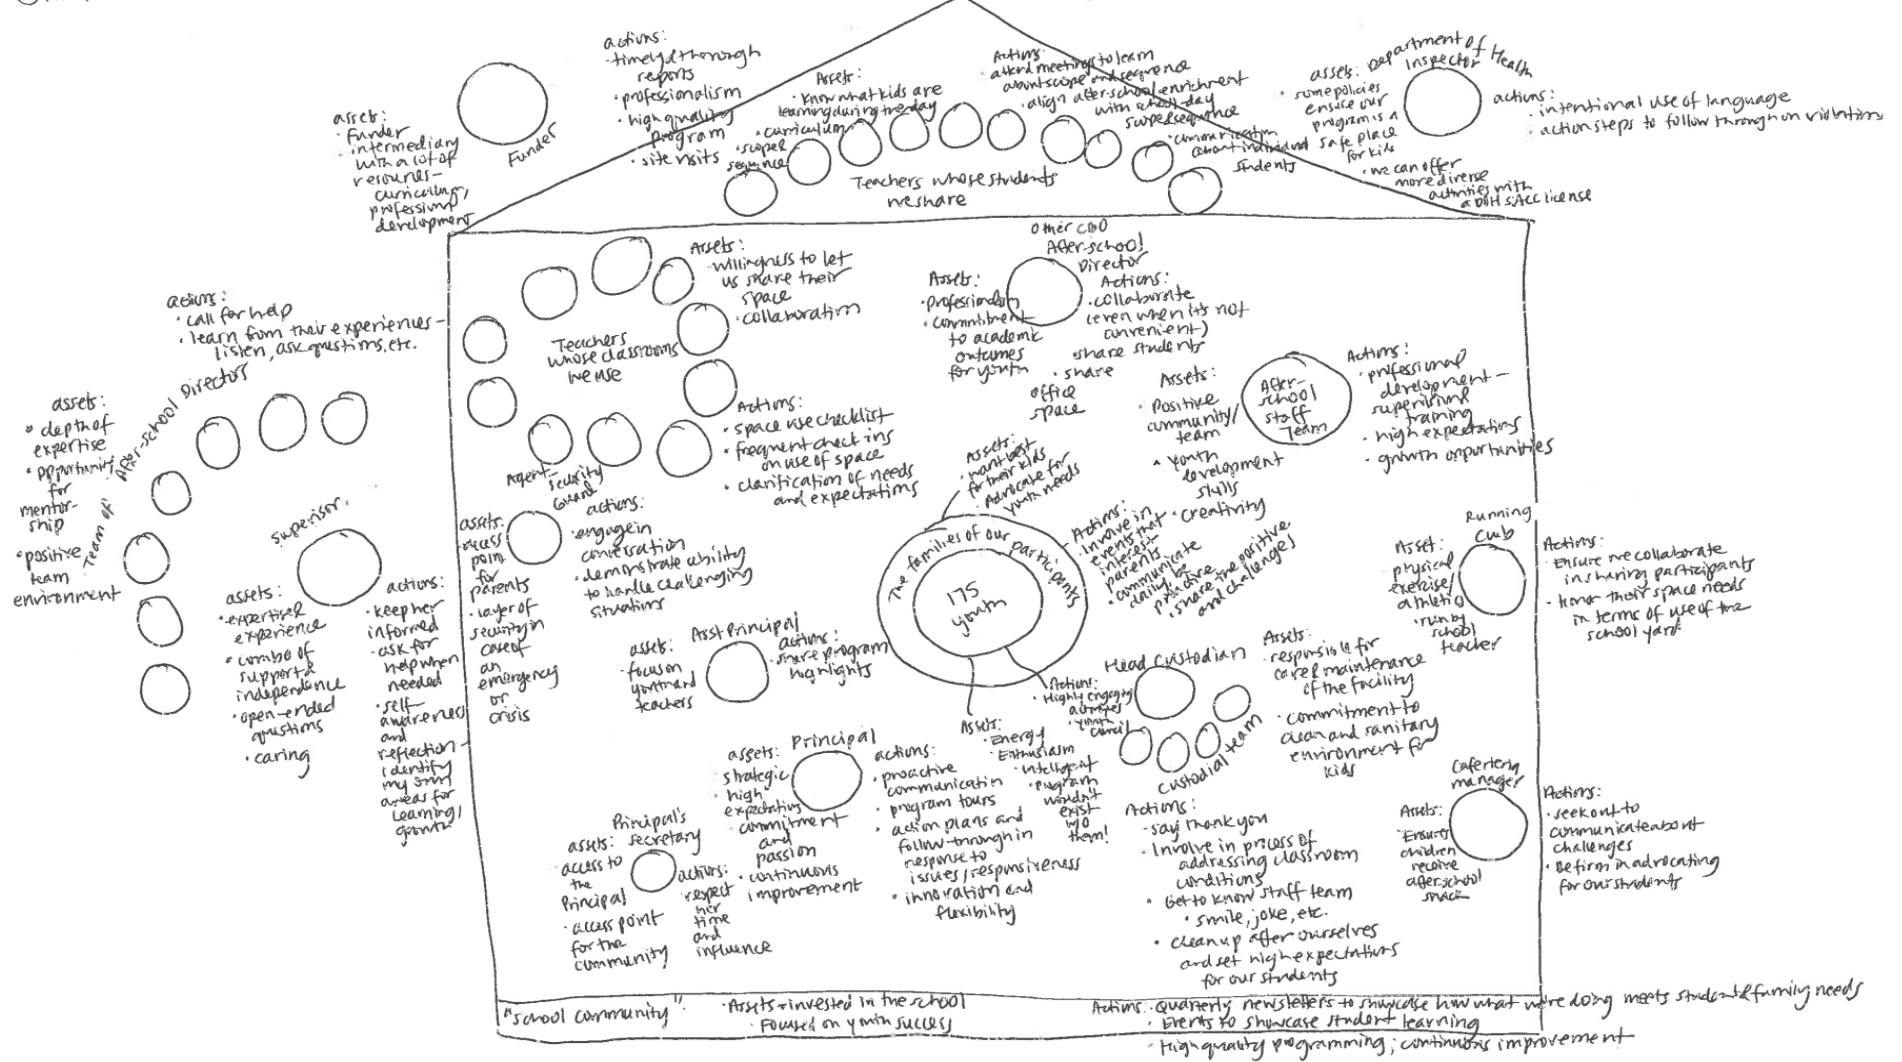 actions:
· timely & thorough
reports
· professionalism
· high quality
program
· site visits
assets:
· funder
· intermediary
with a lot of
resources –
curriculum,
professional
development
Funder
Assets:
· Know what kids are
learning during the day
· curriculum
· scope &
sequence
Actions:
· attend meetings to learn
about scope and sequence
· align after-school enrichment
with school-day
scope & sequence
· communication
about individual
students
Teachers whose students
we share
Department of Health
Inspector
assets:
· some policies
ensure our
program is a
safe place
for kids
· we can offer
more diverse
activities with
a DOH SACC license
actions:
· intentional use of language
· action steps to follow through on violations
actions:
· call for help
· learn from their experiences –
listen, ask questions, etc.
Team of After-school Directors
assets:
· depth of
expertise
· opportunity
for
mentor-
ship
· positive
team
environment
Supervisor
assets:
· expertise &
experience
· combo of
support &
independence
· open-ended
questions
· caring
actions:
· keep her
informed
· ask for
help when
needed
· self-
awareness
and
reflection –
identify
my own
areas for
learning/
growth
Teachers
whose classrooms
we use
Assets:
· willingness to let
us share their
space
· collaboration
Actions:
· space use checklist
· frequent check ins
on use of space
· clarification of needs
and expectations
Other CBO
After-school
Director
Assets:
· professionalism
· commitment
to academic
outcomes
for youth
Actions:
· collaborate
(even when it's not
convenient)
· share students
· share
office
space
After-
school
staff
Team
Assets:
· Positive
community/
team
· youth
development
skills
· creativity
Actions:
· professional
development –
supervision &
training
· high expectations
· growth opportunities
Agent – security
Guard
assets:
· access
point
for
parents
· layer of
security in
case of
an
emergency
or
crisis
actions:
· engage in
conversation
· demonstrate ability
to handle challenging
situations
The families of our participants
175
youth
Assets:
· want best
for their kids
· Advocate for
youth needs
Actions:
· Involve in
events that
interest
parents
· communicate
daily, be
proactive
· share the positive
and challenges
Assets:
· Energy
· Enthusiasm
· intelligent
· program
wouldn't
exist
w/o
them!
Actions:
· Highly engaging
activities
· youth
council
Running
Club
Asset:
physical
exercise/
athletics
· run by
school
teacher
Actions:
· Ensure we collaborate
in sharing participants
· honor their space needs
in terms of use of the
school yard
Asst Principal
assets:
· focus on
youth and
teachers
actions:
· share program
highlights
Principal
assets:
· strategic
· high
expectations
· commitment
and
passion
· continuous
improvement
actions:
· proactive
communication
· program tours
· action plans and
follow-through in
response to
issues/responsiveness
· innovation and
flexibility
Principal's
secretary
assets:
· access to
the
Principal
· access point
for the
community
actions:
respect
her
time
and
influence
Head Custodian
custodial team
Assets:
· responsible for
care & maintenance
of the facility
· commitment to
clean and sanitary
environment for
kids
Actions:
· say thank you
· Involve in process of
addressing classroom
conditions
· Get to know staff team
· smile, joke, etc.
· clean up after ourselves
and set high expectations
for our students
Cafeteria
manager
Assets:
· Ensures
children
receive
after school
snack
Actions:
· seek out to
communicate about
challenges
· Be firm in advocating
for our students
"school community":
· Assets – invested in the school
· Focused on youth success
Actions: · Quarterly newsletters to showcase how what we're doing meets student & family needs
· Events to showcase student learning
· High quality programming; continuous improvement